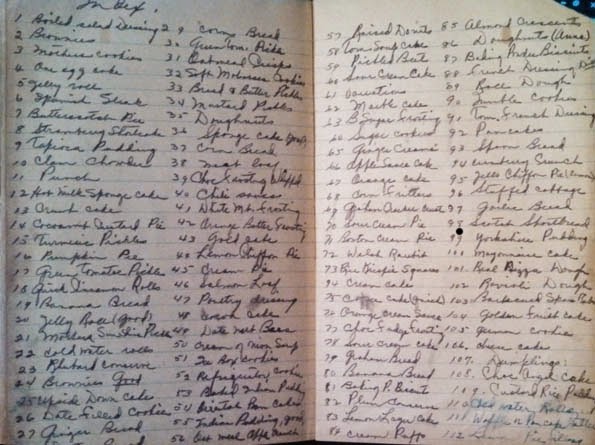 Index.
1 Boiled salad Dressing
2 Brownies
3 Mothers Cookies
4 One egg cake
5 Jelly roll
6 Spanish Steak
7 Butterscotch Pie
8 Strawberry Shortcake
9 Tapioca Pudding
10 Clam Chowder
11 Punch
12 Hot Milk Sponge cake
13 Crumb cake
14 Cocoanut Custard Pie
15 Turmeric Pickles
16 Pumpkin Pie
17 Green Tomatoe Pickles
18 Quick Cinnamon Rolls
19 Banana Bread
20 Jelly Roll (Good)
21 Mothers Sunshine Pickle
22 Cold water rolls
23 Rhubarb conserve
24 Brownies Good
25 Upside Down Cake
26 Date Filled Cookies
27 Ginger Bread
29 Corn Bread
30 Green Tom. Pickle
31 Oatmeal Crisps
32 Soft Molasses Cookies
33 Bread & Butter Pickles
34 Mustard Pickles
35 Doughnuts
36 Sponge cake
37 Corn Bread
38 Meat loaf
39 Choc Frosting Whipped
40 Chili sauce
41 White Mt. Frosting
42 Orange Butter Frosting
43 Gold cake
44 Lemon Chiffon Pie
45 Cream Pie
46 Salmon Loaf
47 Poultry dressing
48 cake
49 Date Nut Bars
50 Cream of Mon Soup
51 Ice Box Cookies
52 Refrigerator Cookies
53 Baked Indian Pudding
54 Oriental Pan Cakes
55 Indian Pudding, good
56 Oat meal
57 Raised Donuts
58 Tom. Soup Cake
59 Pickled Beet
60 Sour Cream Cake
61
62 Marble Cake
63 B. Sugar Frosting
64 Sugar Cookies
65 Ginger Creams
66 Apple Sauce Cake
67 Orange cake
68 Corn Fritters
69 Graham Cracker Crust
70 Sour Cream Pie
71 Boston Cream Pie
72 Welsh Rarebit
73 Rice Krispie Squares
74 Cream cakes
75 cake
76 Orange Cream Sauce
77 Choc Fudge Frosting
78 Sour cream cake
79 Graham Bread
80 Banana Bread
81 Baking P. Biscuit
82 Plum Conserve
83 Lemon Layer Cake
84 Cream Puff
85 Almond Crescents
86 Doughnuts (Anna)
87 Baking Powder Biscuits
88 French Dressing
89 Roll Dough
90 Jumble Cookies
91 Tom. French Dressing
92 Pancakes
93 Spoon Bread
94 Cranberry Crunch
95 Jello Chiffon Pie (Lemon)
96 Stuffed Cabbage
97 Garlic Bread
98 Scotch Shortbread
99 Yorkshire Pudding
100 Mayonnaise cake
101 Real Pizza Dough
102 Ravioli Dough
103 Barbecued Spare Ribs
104 Golden Fruit cake
105 Lemon cookies
106 Cheese cake
107. Dumplings
108 Choc Angel cake
109 Custard Rice Pudding
110 Cold water Rolls
111 Waffle or Pan Cake
112